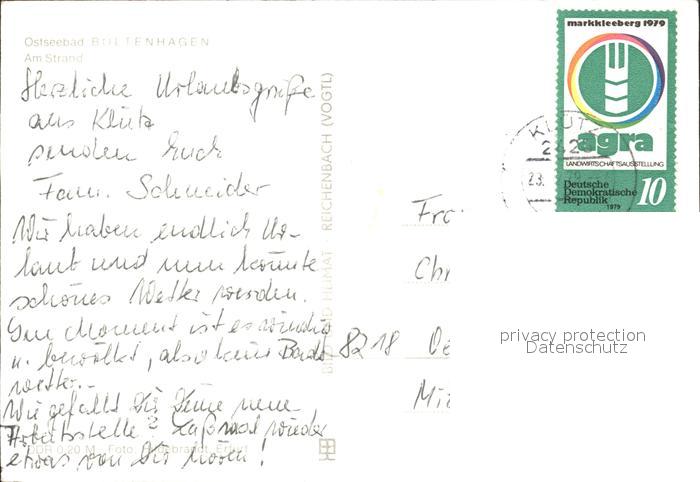 Ostseebad BOLTENHAGEN
Am Strand
Herzliche Urlaubsgrüße
aus Klütz
senden Euch
Fam. Schneider
Wir haben endlich Ur-
laub und nun könnte
schönes Wetter werden.
Im Moment ist es windig
u. bewölkt, also kein Bade
wetter.-
Wie gefällt Dir Deine neue
Arbeitsstelle? Laß mal wieder
etwas von Dir hören!
DDR 0,20 M Foto: Hildebrandt, Erfurt
BILD UND HEIMAT · REICHENBACH (VOGTL)
markkleeberg 1979
agra
LANDWIRTSCHAFTSAUSSTELLUNG
Deutsche
Demokratische
Republik
1979
10
KLÜTZ
2423
23.
Fra
Chr
8218
Mi
privacy protection
Datenschutz